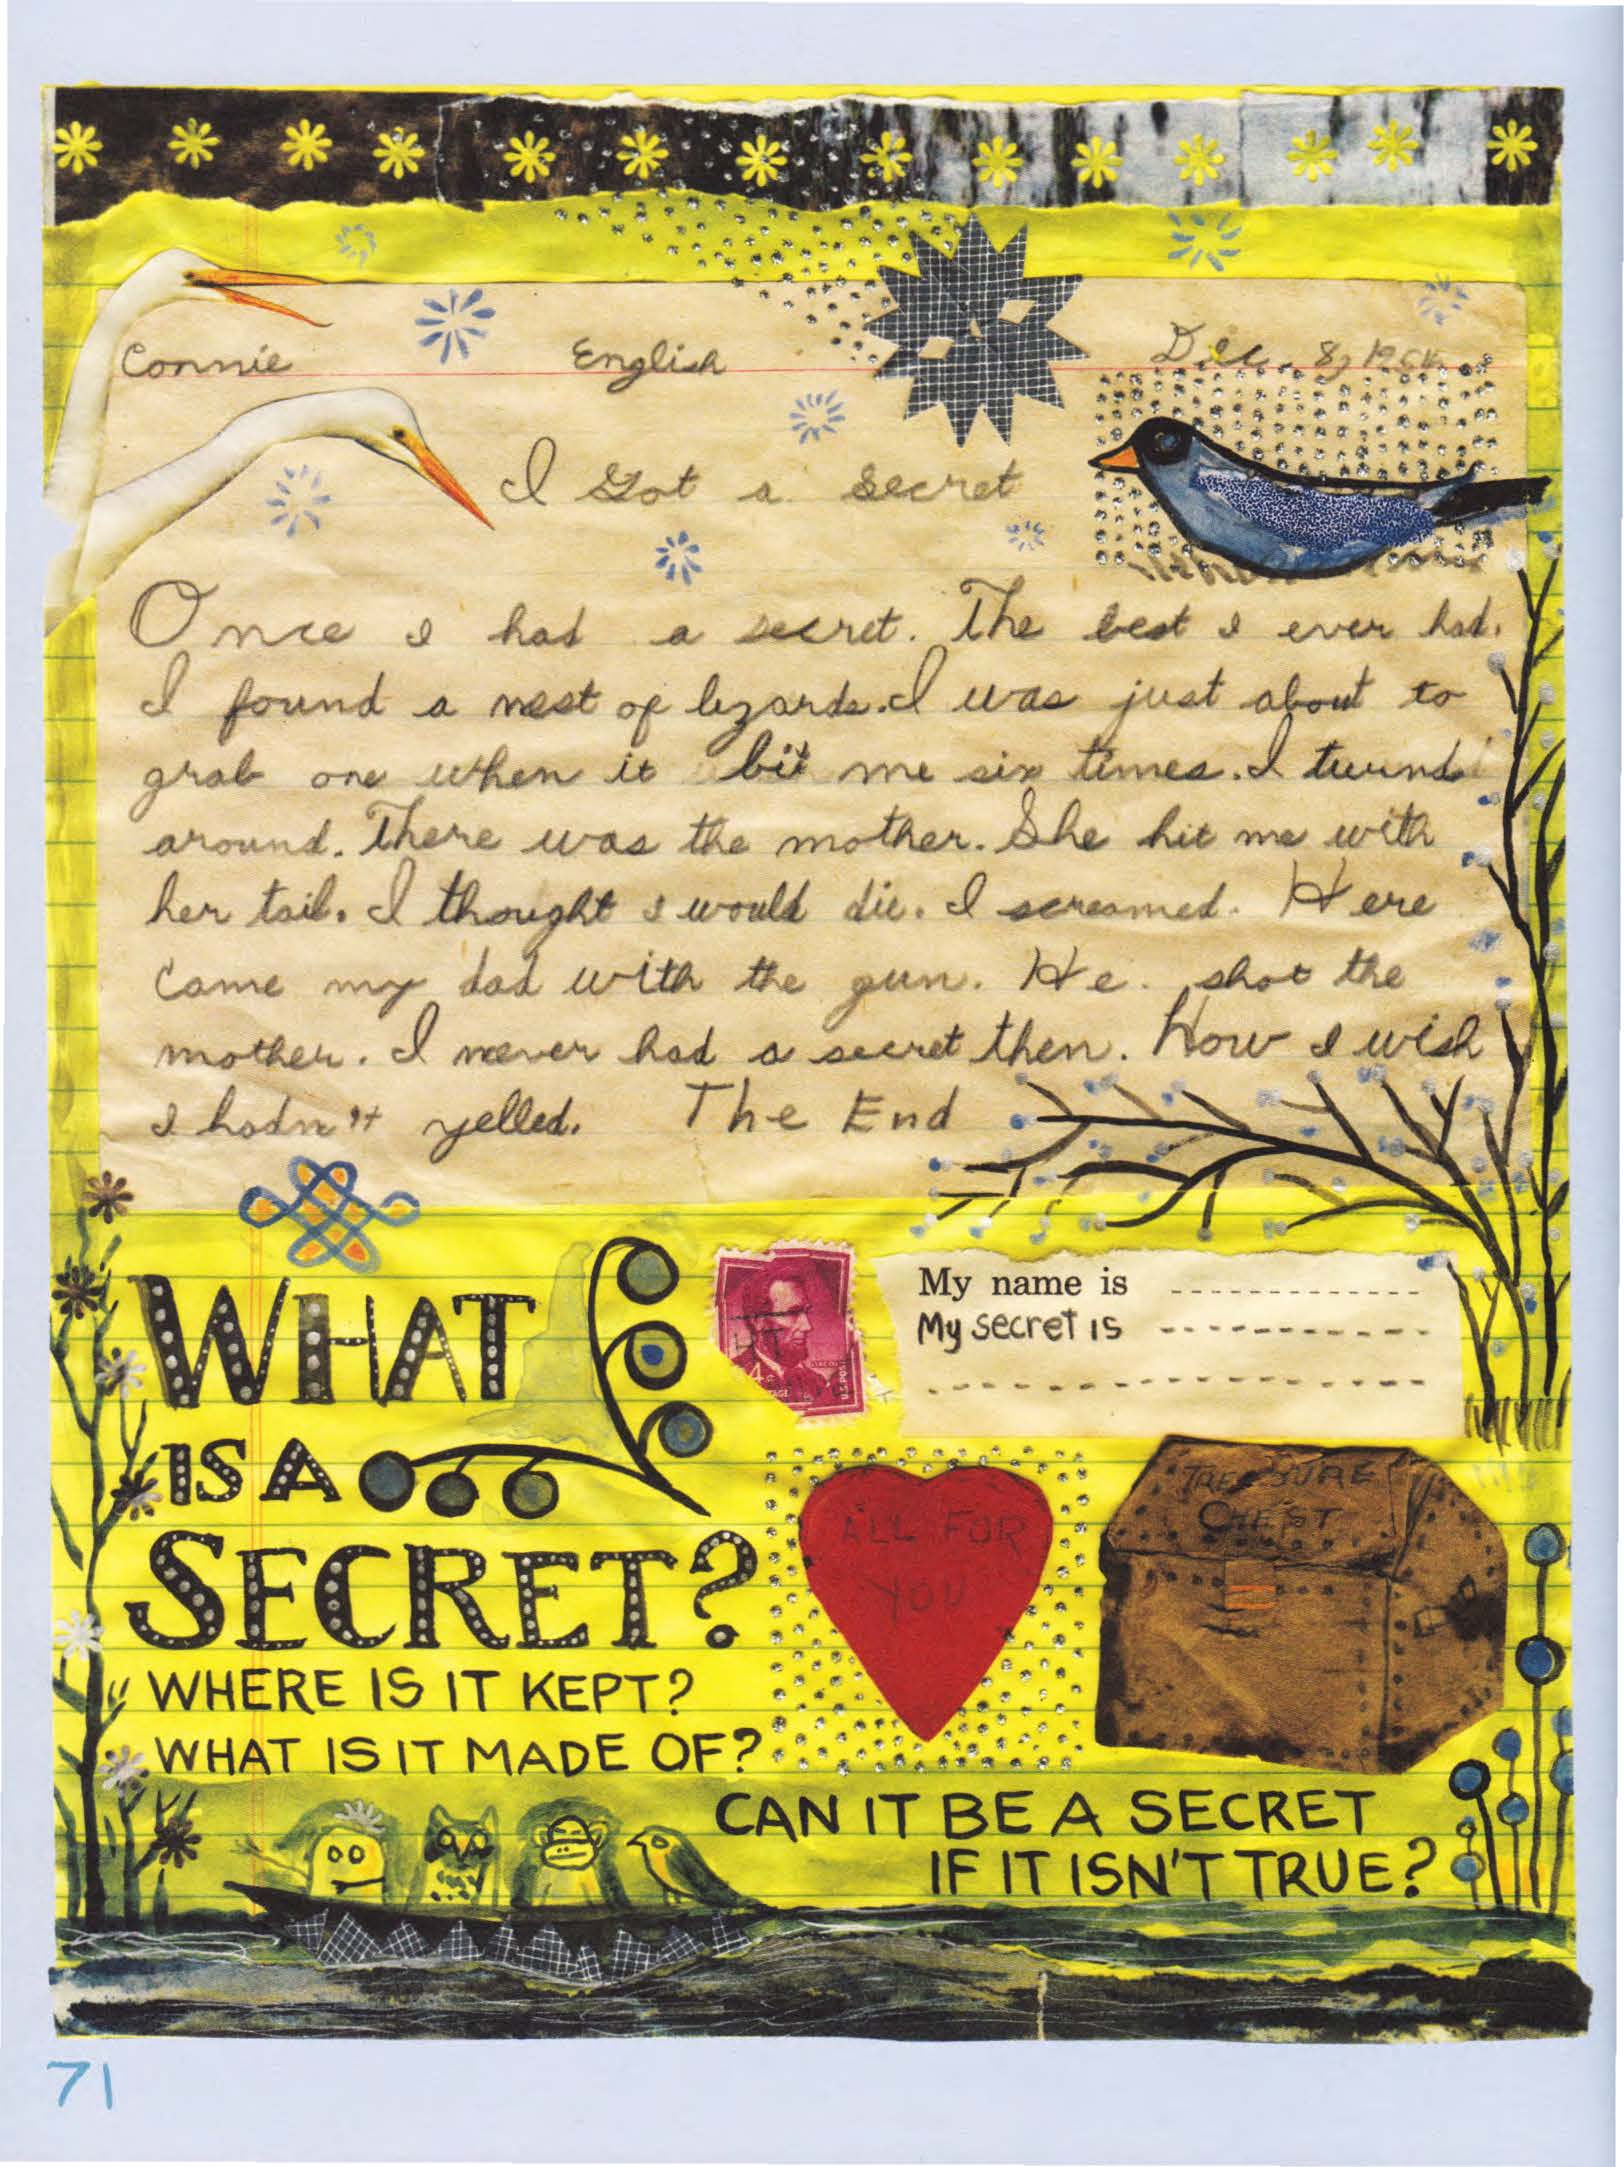 Connie English Dec. 8, 19
I Got a Secret
Once I had a secret. The best I ever had.
I found a nest of lizards. I was just about to
grab one when it bit me six times. I twund
around. There was the mother. She hit me with
her tail. I thought I would die. I screamed. Here
came my dad with the gun. He. shot the
mother. I never had a secret then. How I wish
I hadn't yelled. The End
WHAT
IS A
SECRET?
WHERE IS IT KEPT?
WHAT IS IT MADE OF?
4¢
LINCOLN
U.S. POST
My name is
My secret is
ALL FOR
YOU
TREASURE
CHEST
CAN IT BE A SECRET
IF IT ISN'T TRUE?
71